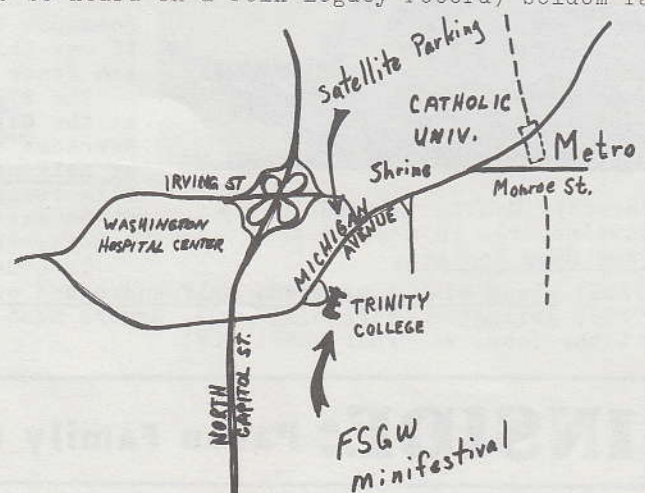 Satellite Parking
CATHOLIC
UNIV.
Metro
Shrine
Monroe St.
IRVING ST
WASHINGTON
HOSPITAL CENTER
MICHIGAN
AVENUE
TRINITY
COLLEGE
NORTH
CAPITOL ST.
FSGW
minifestival